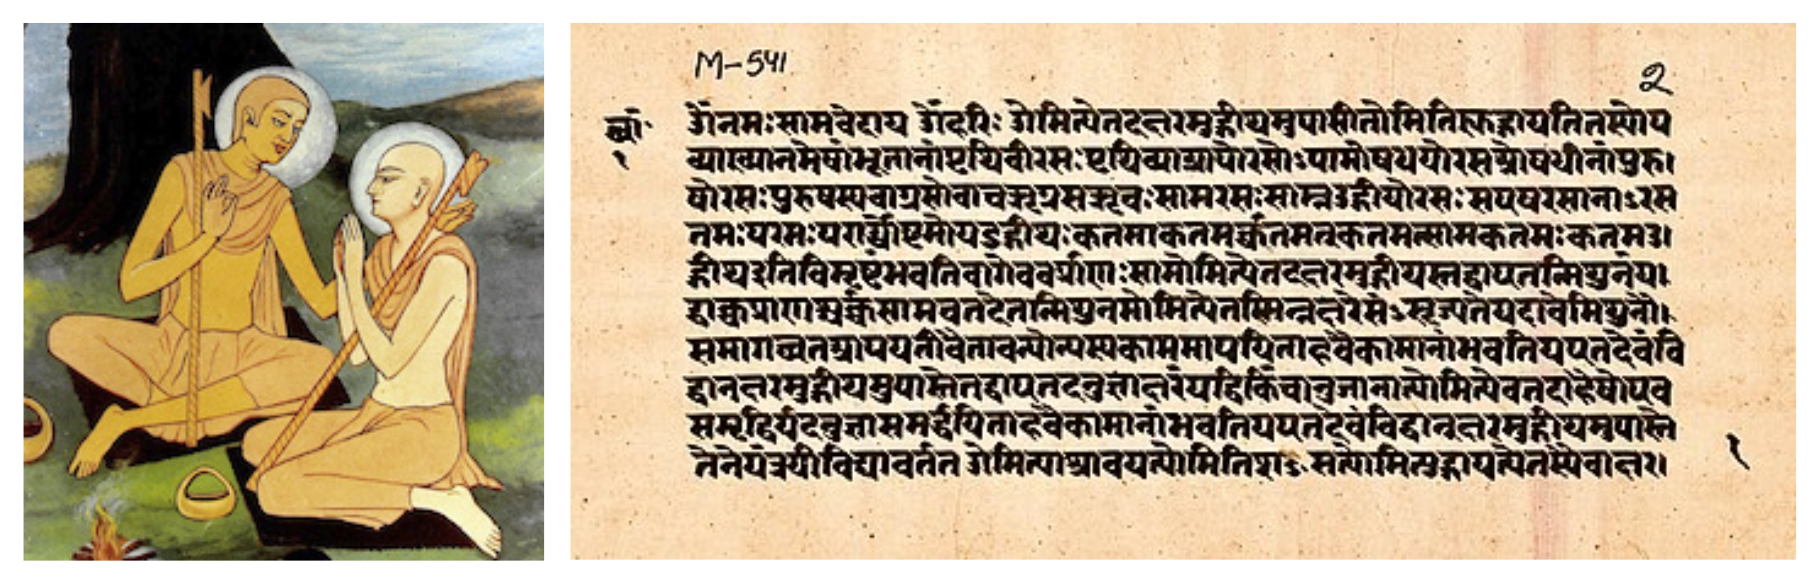 M-541
२
छां॰
१
ॐनमःसामवेदाय ॐहरिः ॐमित्येतदक्षरमुद्गीथमुपासीतोमितिह्युद्गायतितस्योप
व्याख्यानमेषांभूतानांपृथिवीरसःपृथिव्याआपोरसोऽपामोषधयोरसओषधीनांपुरु।
षोरसःपुरुषस्यवाग्रसोवाचऋग्रसऋचःसामरसःसाम्नउद्गीथोरसःसएषरसानाऽरस
तमःपरमःपरार्ध्योष्टमोयउद्गीथःकतमाकतमर्क्कतमत्कतमत्सामकतमःकतमउ।
द्गीथइतिविमृष्टंभवतिवागेवर्क्प्राणःसामोमित्येतदक्षरमुद्गीथस्तद्वाएतन्मिथुनंय।
द्वाक्चप्राणश्चर्क्चसामचतदेतन्मिथुनमोमित्येतस्मिन्नक्षरेसंऽसृज्यतेयदावैमिथुनौ।
समागच्छतआपयतोवैतावन्योन्यस्यकाममापयिताहवैकामानांभवतियएतदेवंवि
द्वानक्षरमुद्गीथमुपास्तेतद्वाएतदनुज्ञाक्षरंयद्धिकिंचानुजानात्योमित्येवतदाहैषोएव
समृद्धिर्यदनुज्ञासमर्द्धयिताहवैकामानांभवतियएतदेवंविद्वानक्षरमुद्गीथमुपास्ते
तेनेयंत्रयीविद्यावर्तत ॐमित्याश्रावयत्योमितिशऽसत्योमित्युद्गायत्येतस्यैवाक्षर।
१